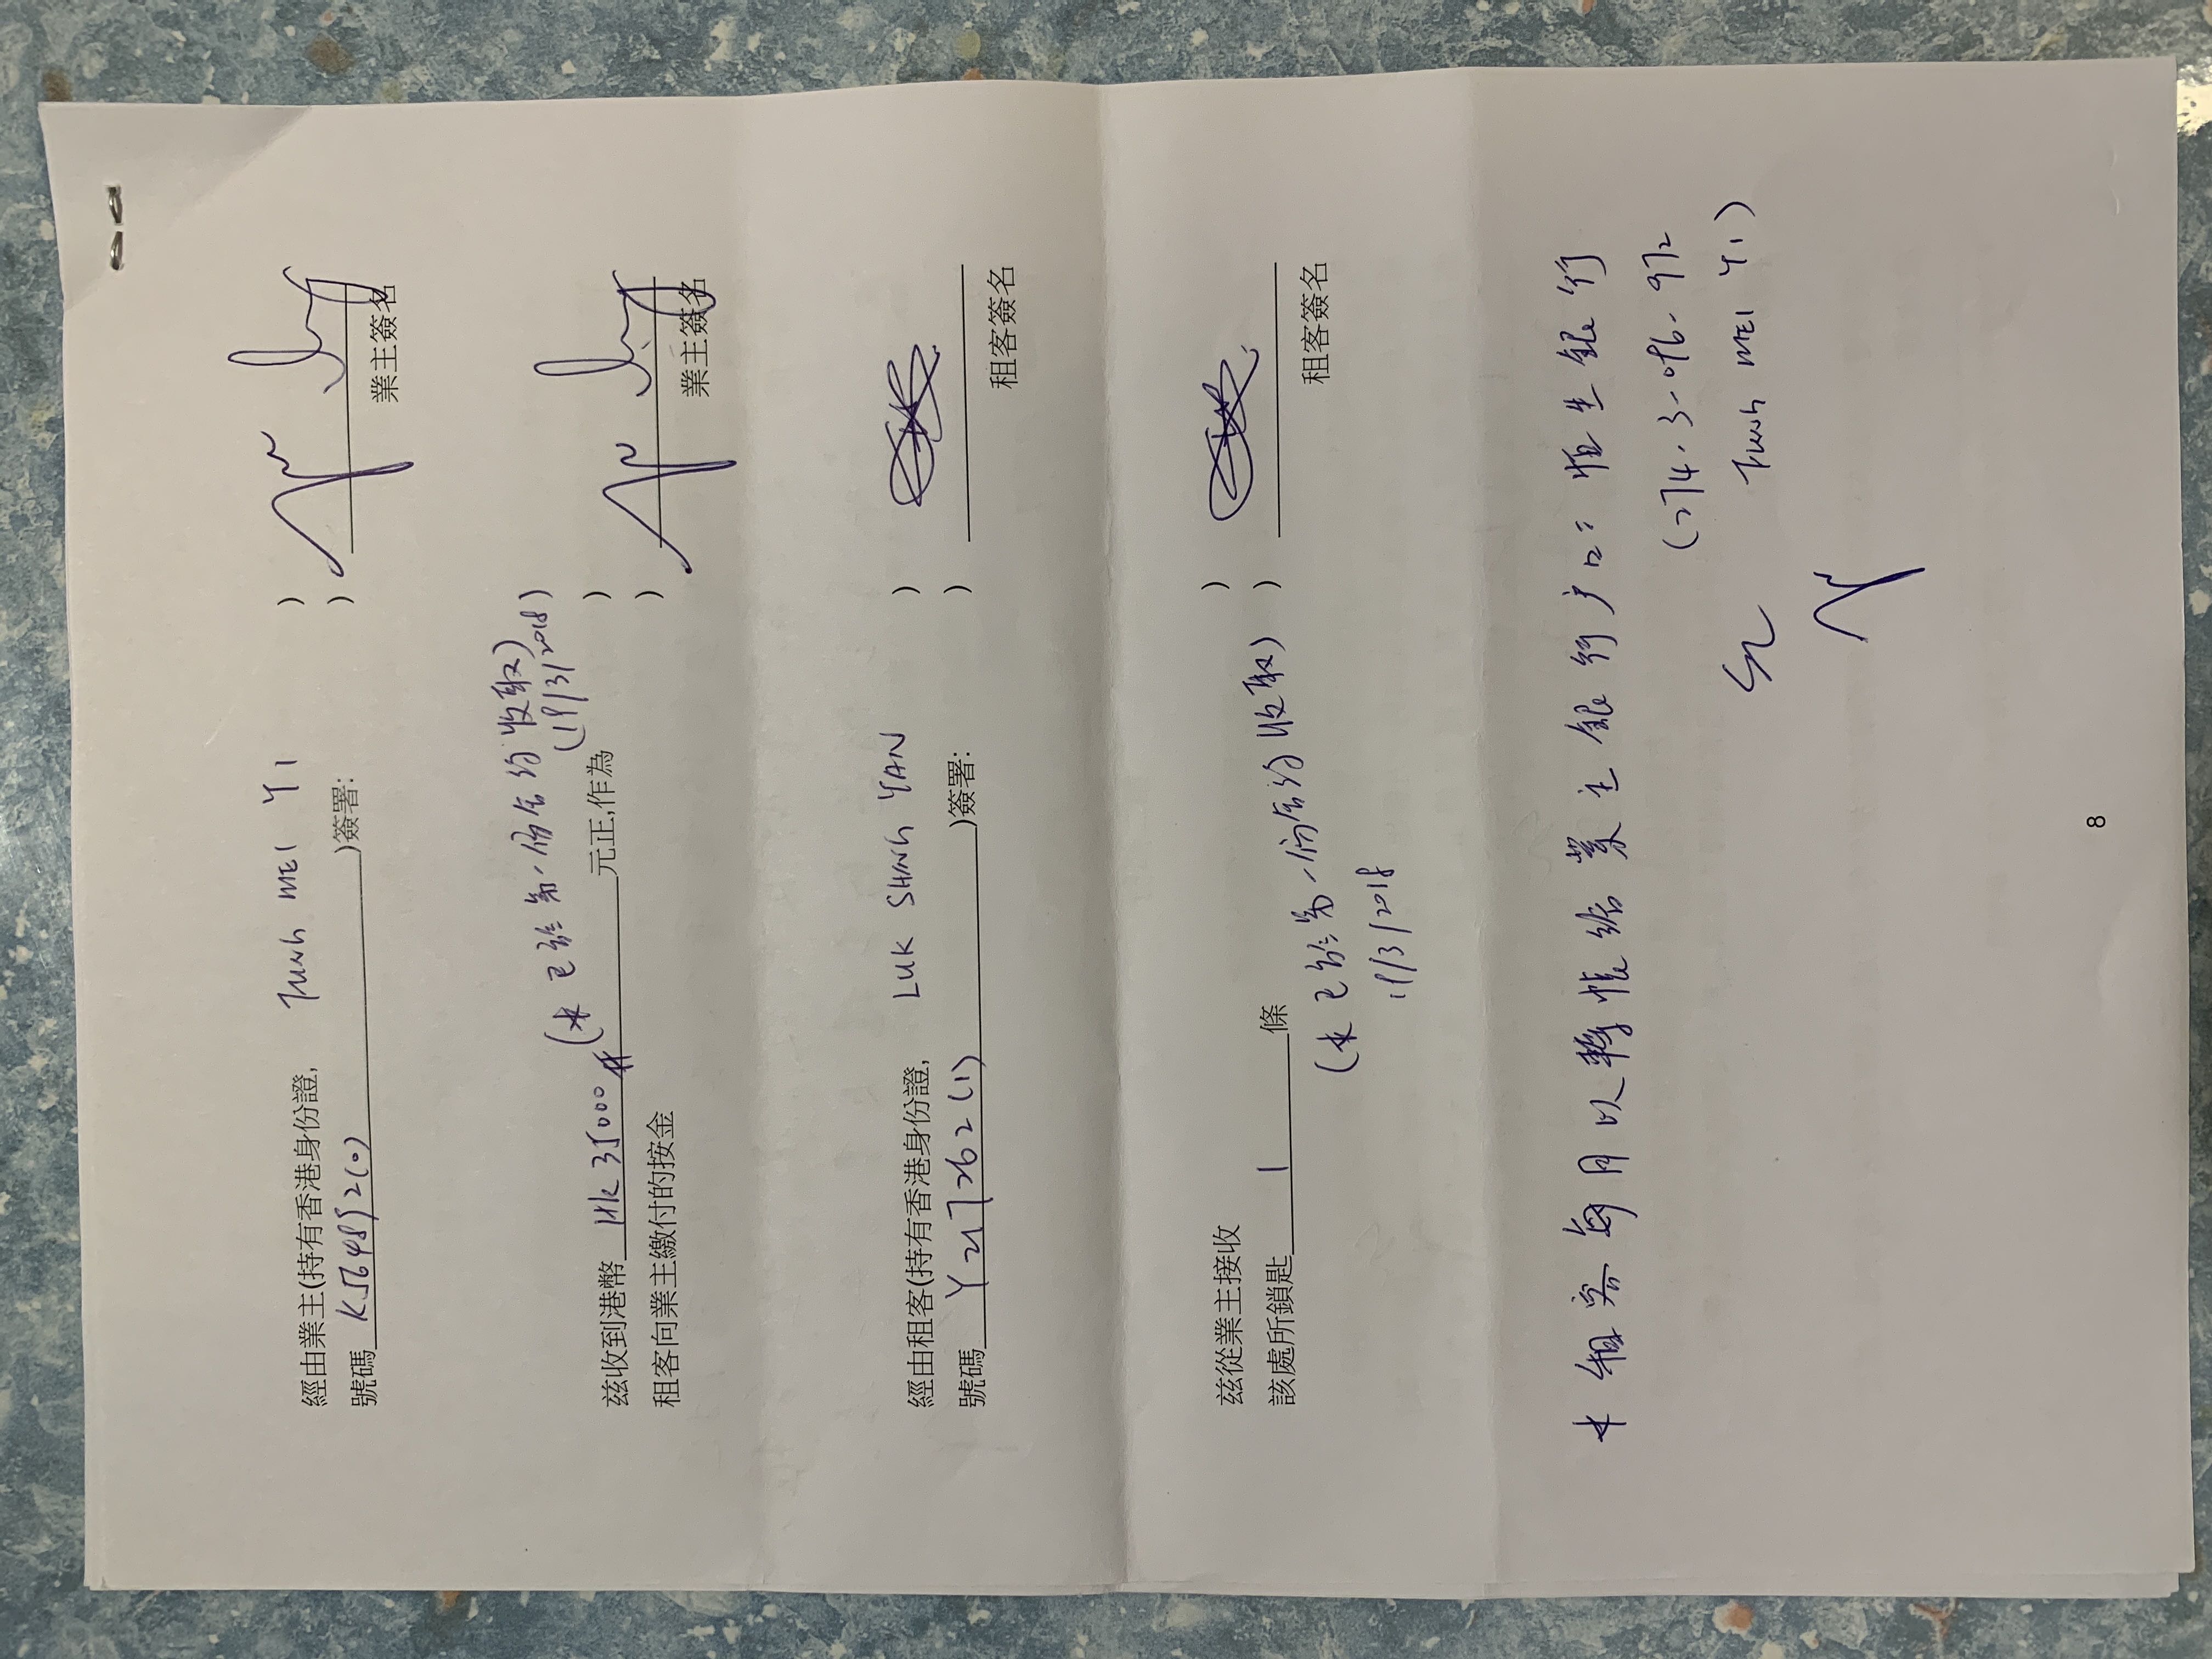 FUNG MEI YI
經由業主(持有香港身份證, )
號碼 K5564852(0) )簽署: )
業主簽名
(* 已於第一份合約收取)
(19/3/2018)
茲收到港幣 HK 35000 元正,作為 )
租客向業主繳付的按金 )
業主簽名
LUK SHING YAN
經由租客(持有香港身份證, )
號碼 Y217262(1) )簽署: )
租客簽名
茲從業主接收 )
該處所鎖匙 1 條 )
租客簽名
(* 已於第一份合約收取)
19/3/2018
* 租客每月以轉帳給業主銀行户口: 恒生銀行
FUNG MEI YI)
8